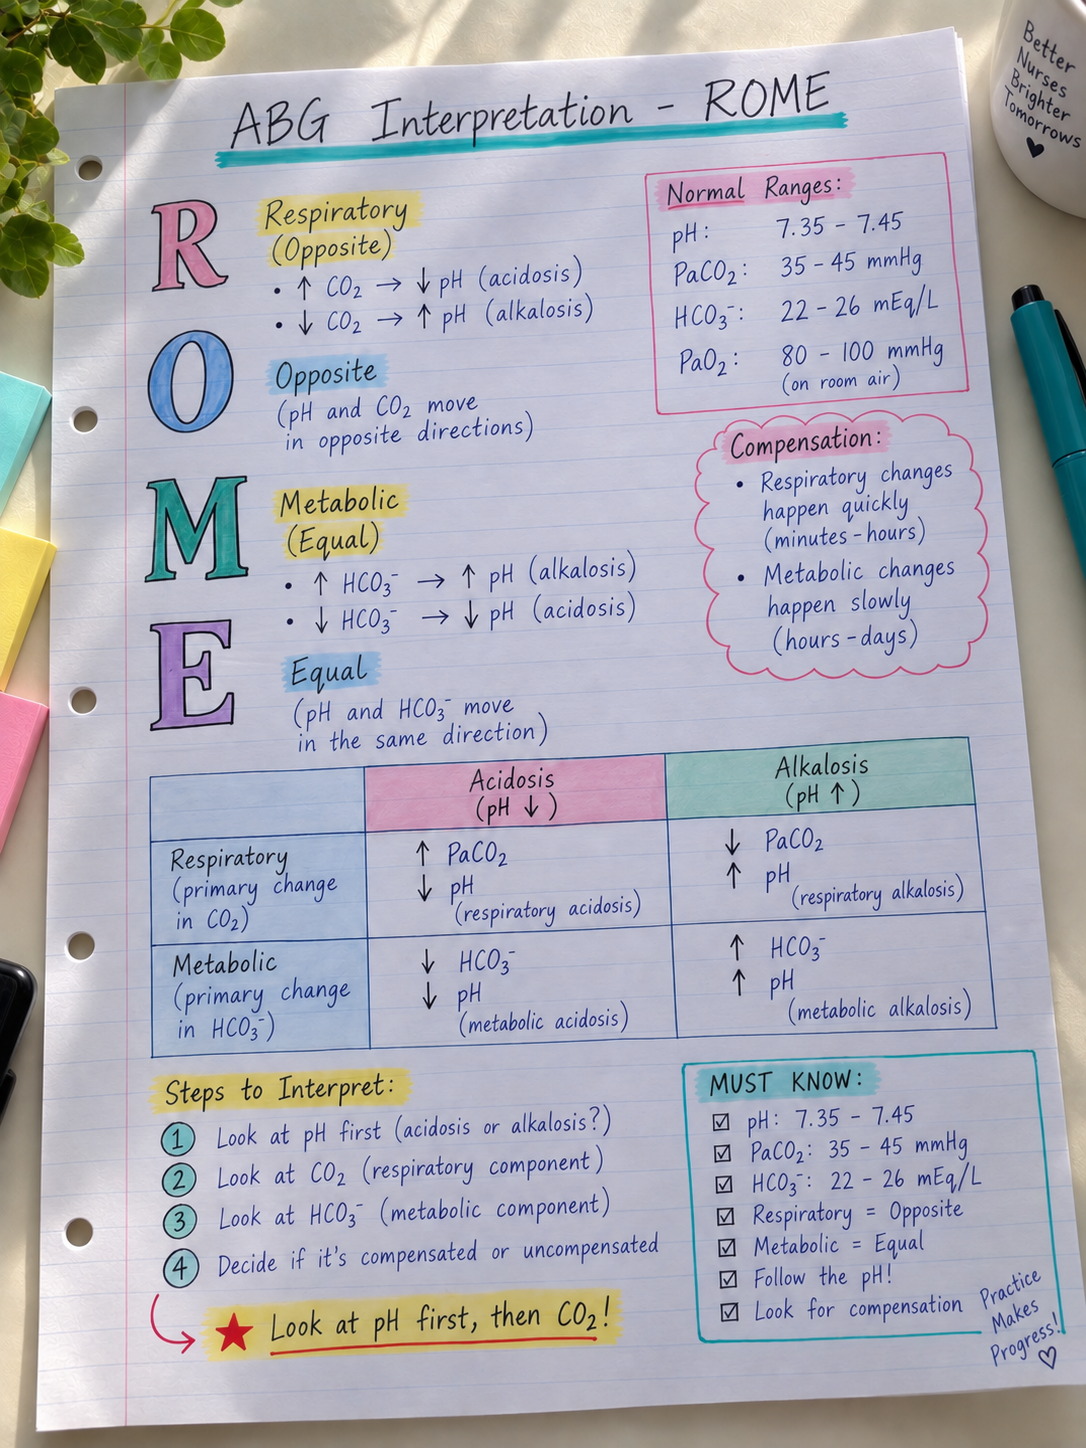 ABG Interpretation - ROME
R
Respiratory
(Opposite)
• ↑ CO₂ → ↓ pH (acidosis)
• ↓ CO₂ → ↑ pH (alkalosis)
O
Opposite
(pH and CO₂ move
in opposite directions)
M
Metabolic
(Equal)
• ↑ HCO₃⁻ → ↑ pH (alkalosis)
• ↓ HCO₃⁻ → ↓ pH (acidosis)
E
Equal
(pH and HCO₃⁻ move
in the same direction)
Normal Ranges:
pH: 7.35 – 7.45
PaCO₂: 35 – 45 mmHg
HCO₃⁻: 22 – 26 mEq/L
PaO₂: 80 – 100 mmHg
(on room air)
Compensation:
• Respiratory changes
happen quickly
(minutes - hours)
• Metabolic changes
happen slowly
(hours - days)
Acidosis
(pH ↓)
Alkalosis
(pH ↑)
Respiratory
(primary change
in CO₂)
↑ PaCO₂
↓ pH
(respiratory acidosis)
↓ PaCO₂
↑ pH
(respiratory alkalosis)
Metabolic
(primary change
in HCO₃⁻)
↓ HCO₃⁻
↓ pH
(metabolic acidosis)
↑ HCO₃⁻
↑ pH
(metabolic alkalosis)
Steps to Interpret:
1 Look at pH first (acidosis or alkalosis?)
2 Look at CO₂ (respiratory component)
3 Look at HCO₃⁻ (metabolic component)
4 Decide if it's compensated or uncompensated
★ Look at pH first, then CO₂!
MUST KNOW:
☑ pH: 7.35 – 7.45
☑ PaCO₂: 35 – 45 mmHg
☑ HCO₃⁻: 22 – 26 mEq/L
☑ Respiratory = Opposite
☑ Metabolic = Equal
☑ Follow the pH!
☑ Look for compensation
Practice
Makes
Progress!
♡
Better
Nurses
Brighter
Tomorrows
♥